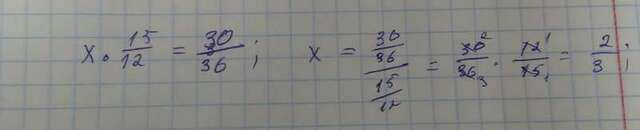 x · 15/12 = 30/36 ; x = (30/36)/(15/12) = 30²/36₃ · 12¹/15₁ = 2/3 ;